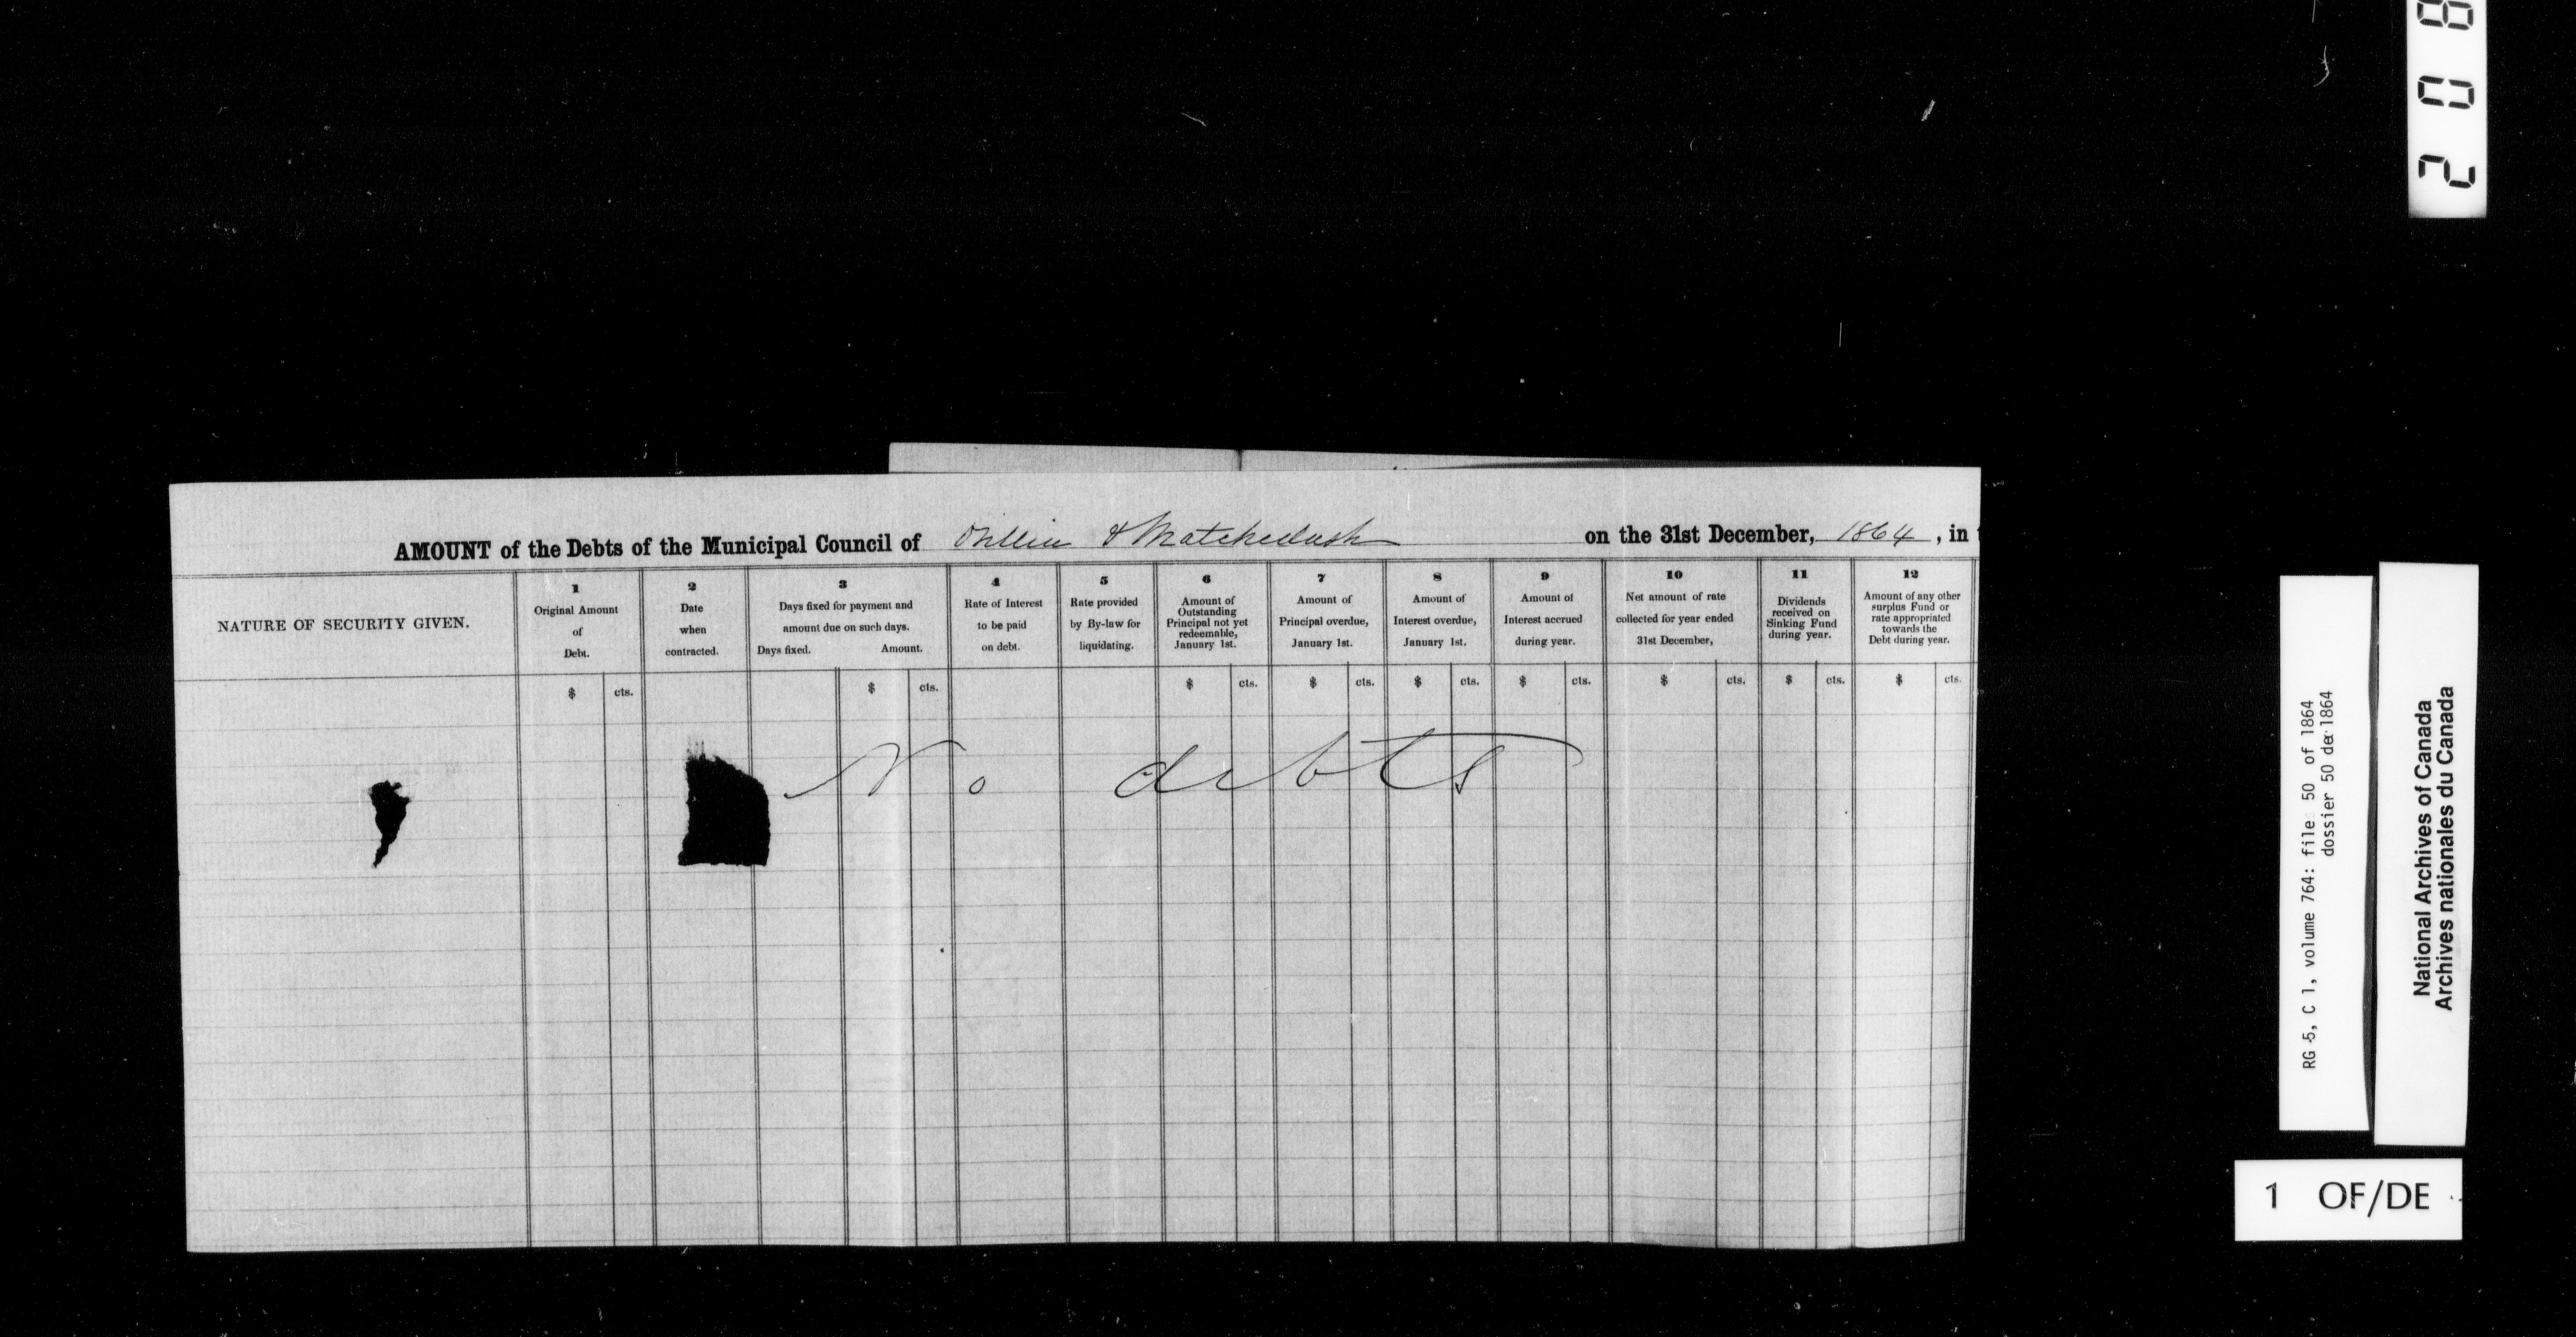 AMOUNT of the Debts of the Municipal Council of Orillia & Matchedash on the 31st December, 1864, in
NATURE OF SECURITY GIVEN.
1
Original Amount
of
Debt.
$ cts.
2
Date
when
contracted.
3
Days fixed for payment and
amount due on such days.
Days fixed. Amount.
$ cts.
4
Rate of Interest
to be paid
on debt.
5
Rate provided
by By-law for
liquidating.
6
Amount of
Outstanding
Principal not yet
redeemable,
January 1st.
$ cts.
7
Amount of
Principal overdue,
January 1st.
$ cts.
8
Amount of
Interest overdue,
January 1st.
$ cts.
9
Amount of
Interest accrued
during year.
$ cts.
10
Net amount of rate
collected for year ended
31st December,
$ cts.
11
Dividends
received on
Sinking Fund
during year.
$ cts.
12
Amount of any other
surplus Fund or
rate appropriated
towards the
Debt during year.
$ cts.
No debts
208
RG 5, C 1, volume 764: file 50 of 1864
dossier 50 de 1864
National Archives of Canada
Archives nationales du Canada
1 OF/DE